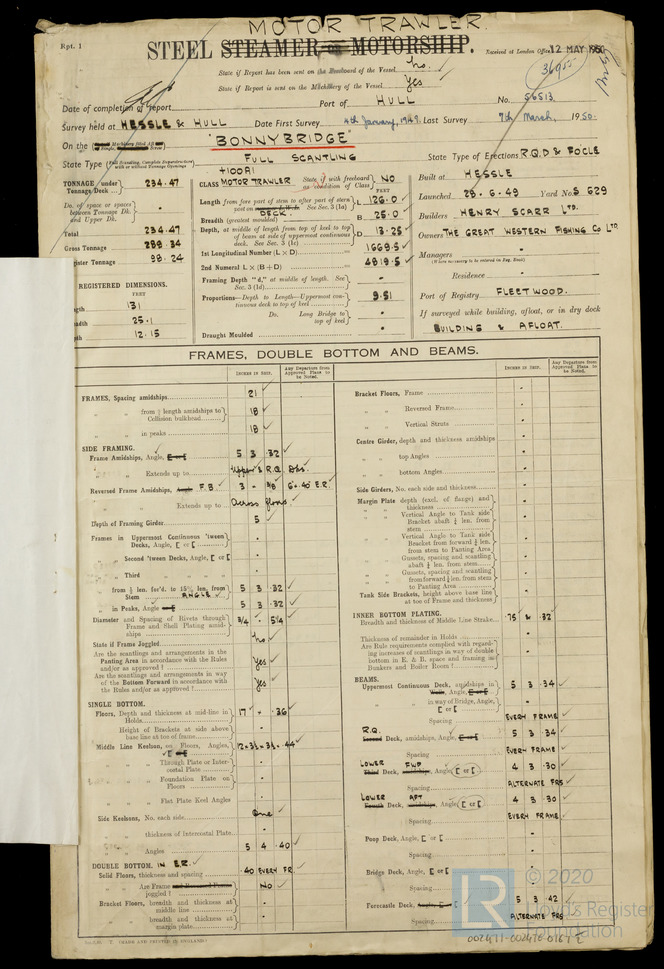 MOTOR TRAWLER.
Rpt. 1
STEEL STEAMER or MOTORSHIP.
Received at London Office 12 MAY 1950
State if Report has been sent on the Freeboard of the Vessel no.
State if Report is sent on the Machinery of the Vessel Yes
Date of completion of report
Port of HULL
No. 56513
Survey held at HESSLE & HULL
Date First Survey 4th January, 1949.
Last Survey 7th March, 1950.
On the
"BONNYBRIDGE"
State Type
FULL SCANTLING
State Type of Erections R.Q.D & FOCLE
TONNAGE under Tonnage Deck 234.47
Do. of space or spaces between Tonnage Dk. and Upper Dk.
Total 234.47
Gross Tonnage 289.34
Register Tonnage 98.24
REGISTERED DIMENSIONS.
FEET
131
25.1
12.15
+100A1
CLASS MOTOR TRAWLER
State if with freeboard as condition of Class NO
FEET
Length from fore part of stem to after part of stern post on DECK. See Sec. 3 (1a) L 126.0
Breadth (greatest moulded) B 25.0
Depth, at middle of length from top of keel to top of beam at side of uppermost continuous deck. See Sec. 3 (1c) D 13.25
1st Longitudinal Number (L × D) 1669.5
2nd Numeral L × (B + D) 4819.5
Framing Depth "d," at middle of length. See Sec. 3 (1d)
Proportions—Depth to Length—Uppermost continuous deck to top of keel 9.51
Do. Long Bridge to top of keel
Draught Moulded
Built at HESSLE
Launched 28.6.49 Yard No. S 629
Builders HENRY SCARR LTD.
Owners THE GREAT WESTERN FISHING Co LTD
Managers
Residence
Port of Registry FLEETWOOD.
If surveyed while building, afloat, or in dry dock
BUILDING & AFLOAT.
FRAMES, DOUBLE BOTTOM AND BEAMS.
INCHES IN SHIP.
Any Departure from Approved Plans to be Noted.
FRAMES, Spacing amidships 21
from ⅕ length amidships to Collision bulkhead 18
in peaks 18
SIDE FRAMING.
Frame Amidships, Angle, 5 3 .32
Extends up to Upper & R.Q. Dks.
Reversed Frame Amidships, F.B
Extends up to Across floors
Depth of Framing Girder 5
Frames in Uppermost Continuous 'tween Decks, Angle, [ or [
Second 'tween Decks, Angle, [ or [
Third
from ⅕ len. for'd. to 15% len. from Stem ANGLE 5 3 .32
in Peaks, Angle 5 3 .32
Diameter and Spacing of Rivets through Frame and Shell Plating amidships 3/4 5¼
State if Frame Joggled no
Are the scantlings and arrangements in the Panting Area in accordance with the Rules and/or as approved? Yes
Are the scantlings and arrangements in way of the Bottom Forward in accordance with the Rules and/or as approved? Yes
SINGLE BOTTOM.
Floors, Depth and thickness at mid-line in Holds 17 .36
Height of Brackets at side above base line at toe of frame
Middle Line Keelson, on Floors, Angles,
Through Plate or Intercostal Plate
Foundation Plate on Floors
Flat Plate Keel Angles
Side Keelsons, No. each side One
thickness of Intercostal Plate
Angles 5 4 .40
DOUBLE BOTTOM. IN E.R.
Solid Floors, thickness and spacing .40 EVERY FR.
Are Frame joggled? NO
Bracket Floors, breadth and thickness at middle line
breadth and thickness at margin plate
Bracket Floors, Frame
Reversed Frame
Vertical Struts
Centre Girder, depth and thickness amidships
top Angles
bottom Angles
Side Girders, No. each side and thickness
Margin Plate depth (excl. of flange) and thickness
Vertical Angle to Tank side Bracket abaft ¼ len. from stem
Vertical Angle to Tank side Bracket from forward ¼ len. from stem to Panting Area
Gussets, spacing and scantling abaft ¼ len. from stem
Gussets, spacing and scantling from forward ¼ len. from stem to Panting Area
Tank Side Brackets, height above base line at toe of Frame and thickness
INNER BOTTOM PLATING.
Breadth and thickness of Middle Line Strake .32
Thickness of remainder in Holds
Are Rule requirements complied with regarding increases of scantlings in way of double bottom in E. & B. space and framing in Bunkers and Boiler Room?
BEAMS.
Uppermost Continuous Deck, amidships in 5 3 .34
in way of Bridge, Angle, [ or [
Spacing EVERY FRAME
R.Q. Deck, amidships, Angle, 5 3 .34
Spacing EVERY FRAME
LOWER FWD Deck, Angle, [ or [ 4 3 .30
Spacing ALTERNATE FRS
LOWER AFT Deck, Angle, [ or [ 4 3 .30
Spacing EVERY FRAME
Poop Deck, Angle, [ or [
Spacing
Bridge Deck, Angle, [ or [
Spacing
Forecastle Deck, 5 3 .42
Spacing ALTERNATE FRS
LR
© 2020
Lloyd's Register
Foundation